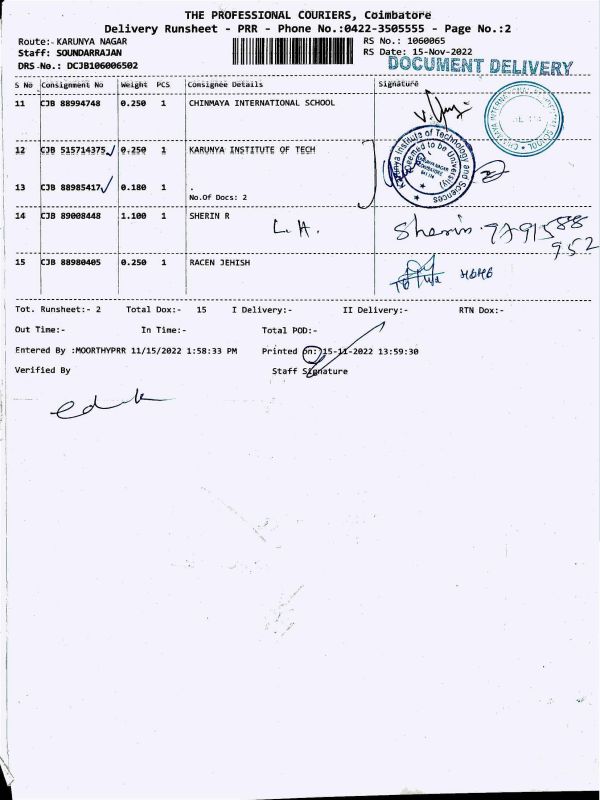 THE PROFESSIONAL COURIERS, Coimbatore
Delivery Runsheet - PRR - Phone No.:0422-3505555 - Page No.:2
Route:- KARUNYA NAGAR RS No.: 1060065
Staff: SOUNDARRAJAN RS Date: 15-Nov-2022
DRS No.: DCJB106006502 DOCUMENT DELIVERY
S No Consignment No Weight PCS Consignee Details Signature
11 CJB 88994748 0.250 1 CHINMAYA INTERNATIONAL SCHOOL
12 CJB 515714375 0.250 1 KARUNYA INSTITUTE OF TECH
Karunya Institute of Technology and Sciences
(Deemed to be University)
13 CJB 88985417 0.180 1 .
No.Of Docs: 2
14 CJB 89008448 1.100 1 SHERIN R
L.H. Sherin. 9791588
952
15 CJB 88980405 0.250 1 RACEN JEHISH
Tot. Runsheet:- 2 Total Dox:- 15 I Delivery:- II Delivery:- RTN Dox:-
Out Time:- In Time:- Total POD:-
Entered By :MOORTHYPRR 11/15/2022 1:58:33 PM Printed on: 15-11-2022 13:59:30
Verified By Staff Signature